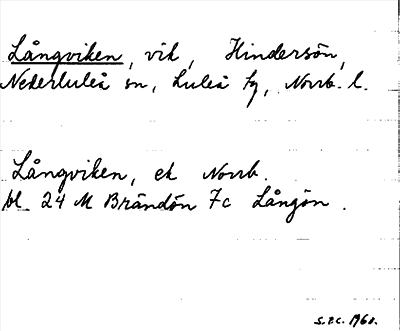 Långviken, vik, Hindersön,
Nederluleå sn, Luleå tg, Norrb. l.
Långviken, ek Norrb.
bl. 24 M Brändön 7c Långön.
1960.